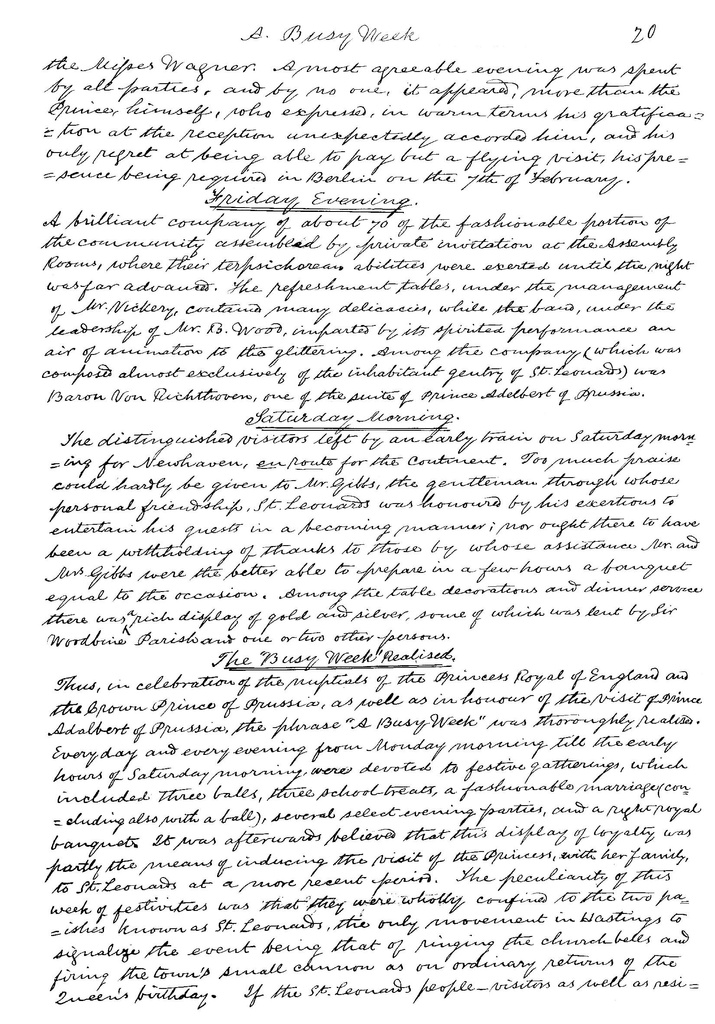 A. Busy Week 20
the Misses Wagner. A most agreeable evening was spent
by all parties, and by no one, it appeared, more than the
Prince, himself, who expressed, in warm terms his gratifica=
=tion at the reception unexpectedly accorded him, and his
only regret at being able to pay but a flying visit, his pre=
=sence being required in Berlin on the 7th of February.
Friday Evening.
A brilliant company of about 70 of the fashionable portion of
the community assembled by private invitation at the Assembly
Rooms, where their terpsichorean abilities were exerted until the night
was far advanced. The refreshment tables, under the management
of Mr. Vickery, contained many delicacies, while the band, under the
leadership of Mr. B. Wood, imparted by its spirited performance an
air of animation to the glittering. Among the company (which was
composed almost exclusively of the inhabitant gentry of St. Leonards) was
Baron Von Richthoven, one of the suite of Prince Adelbert of Prussia.
Saturday Morning.
The distinguished visitors left by an early train on Saturday morn
=ing for Newhaven, en route for the Continent. Too much praise
could hardly be given to Mr. Gibbs, the gentleman through whose
personal friendship, St. Leonards was honoured by his exertions to
entertain his guests in a becoming manner; nor ought there to have
been a withholding of thanks to those by whose assistance Mr. and
Mrs Gibbs were the better able to prepare in a few hours a banquet
equal to the occasion. Among the table decorations and dinner service
there was ^ rich display of gold and silver, some of which was lent by Sir
Woodbine Parish and one or two other persons.
The "Busy Week" Realised.
Thus, in celebration of the nuptials of the Princess Royal of England and
the Crown Prince of Prussia, as well as in honour of the visit of Prince
Adalbert of Prussia, the phrase "A Busy Week" was thoroughly realised.
Every day and every evening from Monday morning till the early
hours of Saturday morning, were devoted to festive gatherings, which
included three balls, three school treats, a fashionable marriage (con
=cluding also with a ball), several select evening parties, and a right royal
banquet. It was afterwards believed that this display of loyalty was
partly the means of inducing the visit of the Princess, with her family,
to St. Leonards at a more recent period. The peculiarity of this
week of festivities was that they were wholly confined to the two pa=
=ishes known as St. Leonards, the only movement in Hastings to
signalize the event being that of ringing the church bells and
firing the town's small cannon as on ordinary returns of the
Queen's birthday. If the St. Leonards people – visitors as well as resi=